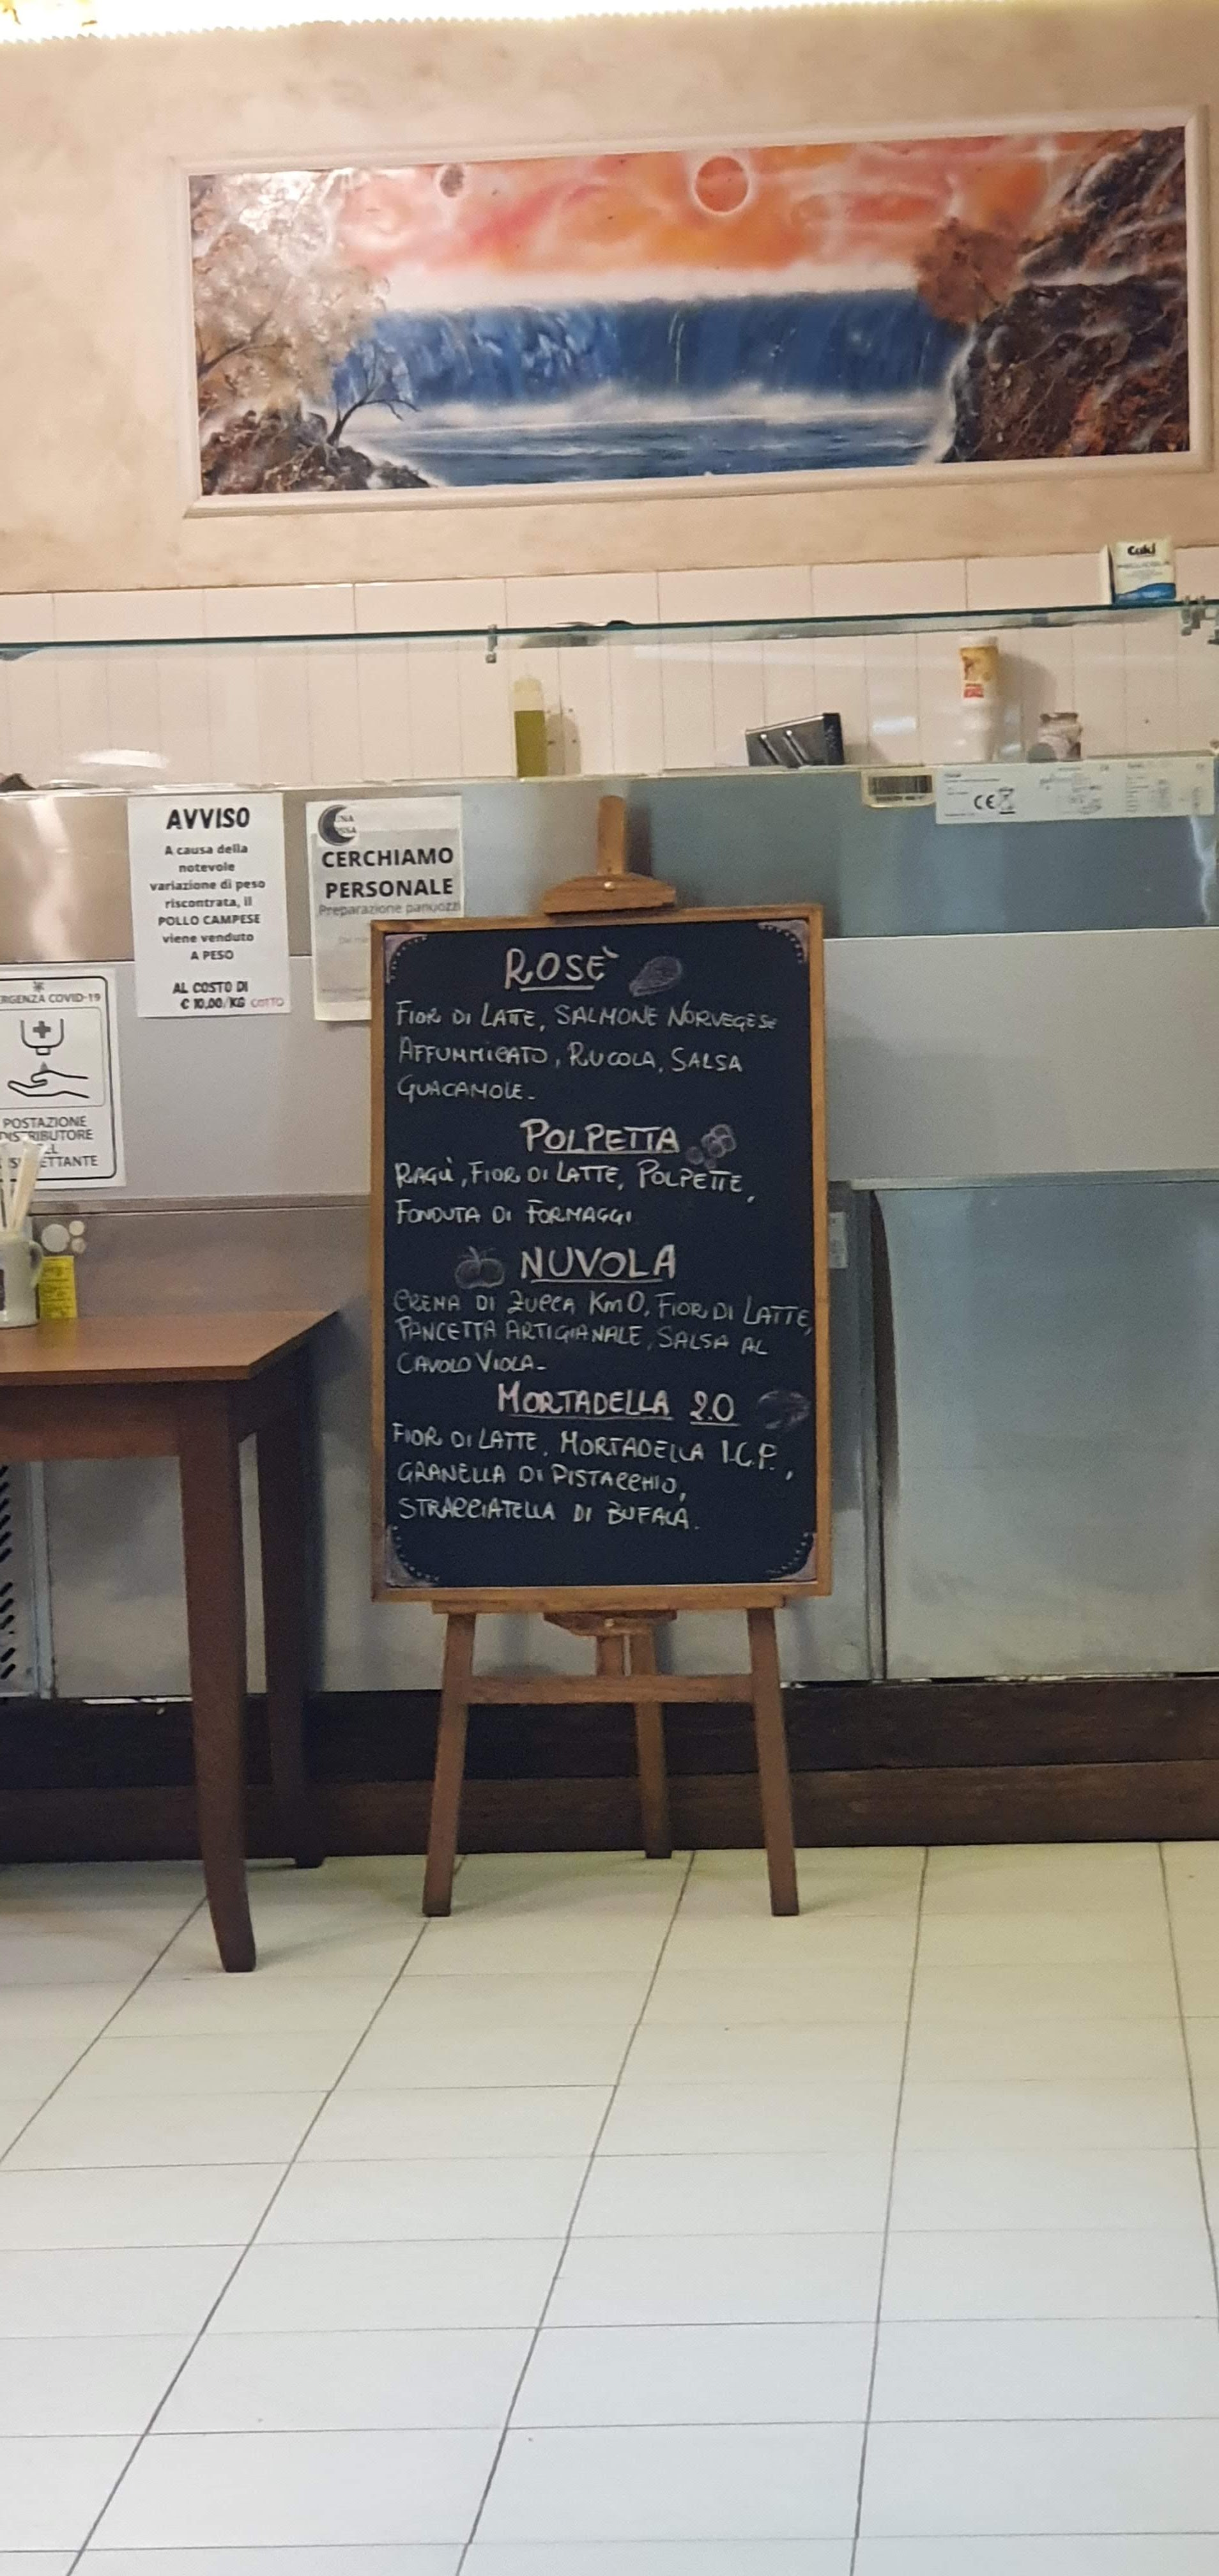 Cuki
PELLICOLA
CE
AVVISO
A causa della
notevole
variazione di peso
riscontrata, il
POLLO CAMPESE
viene venduto
A PESO
AL COSTO DI
€ 10,00/KG COTTO
CERCHIAMO
PERSONALE
Preparazione panuozzi
RGENZA COVID-19
POSTAZIONE
DISTRIBUTORE
ROSE`
FIOR DI LATTE, SALMONE NORVEGESE
AFFUMMICATO, RUCOLA, SALSA
GUACAMOLE.
POLPETTA
RAGÙ, FIOR DI LATTE, POLPETTE,
FONDUTA DI FORMAGGI
NUVOLA
CREMA DI ZUCCA Km0, FIOR DI LATTE,
PANCETTA ARTIGIANALE, SALSA AL
CAVOLO VIOLA-
MORTADELLA 2.0
FIOR DI LATTE, MORTADELLA I.G.P.,
GRANELLA DI PISTACCHIO,
STRACCIATELLA DI BUFALA.